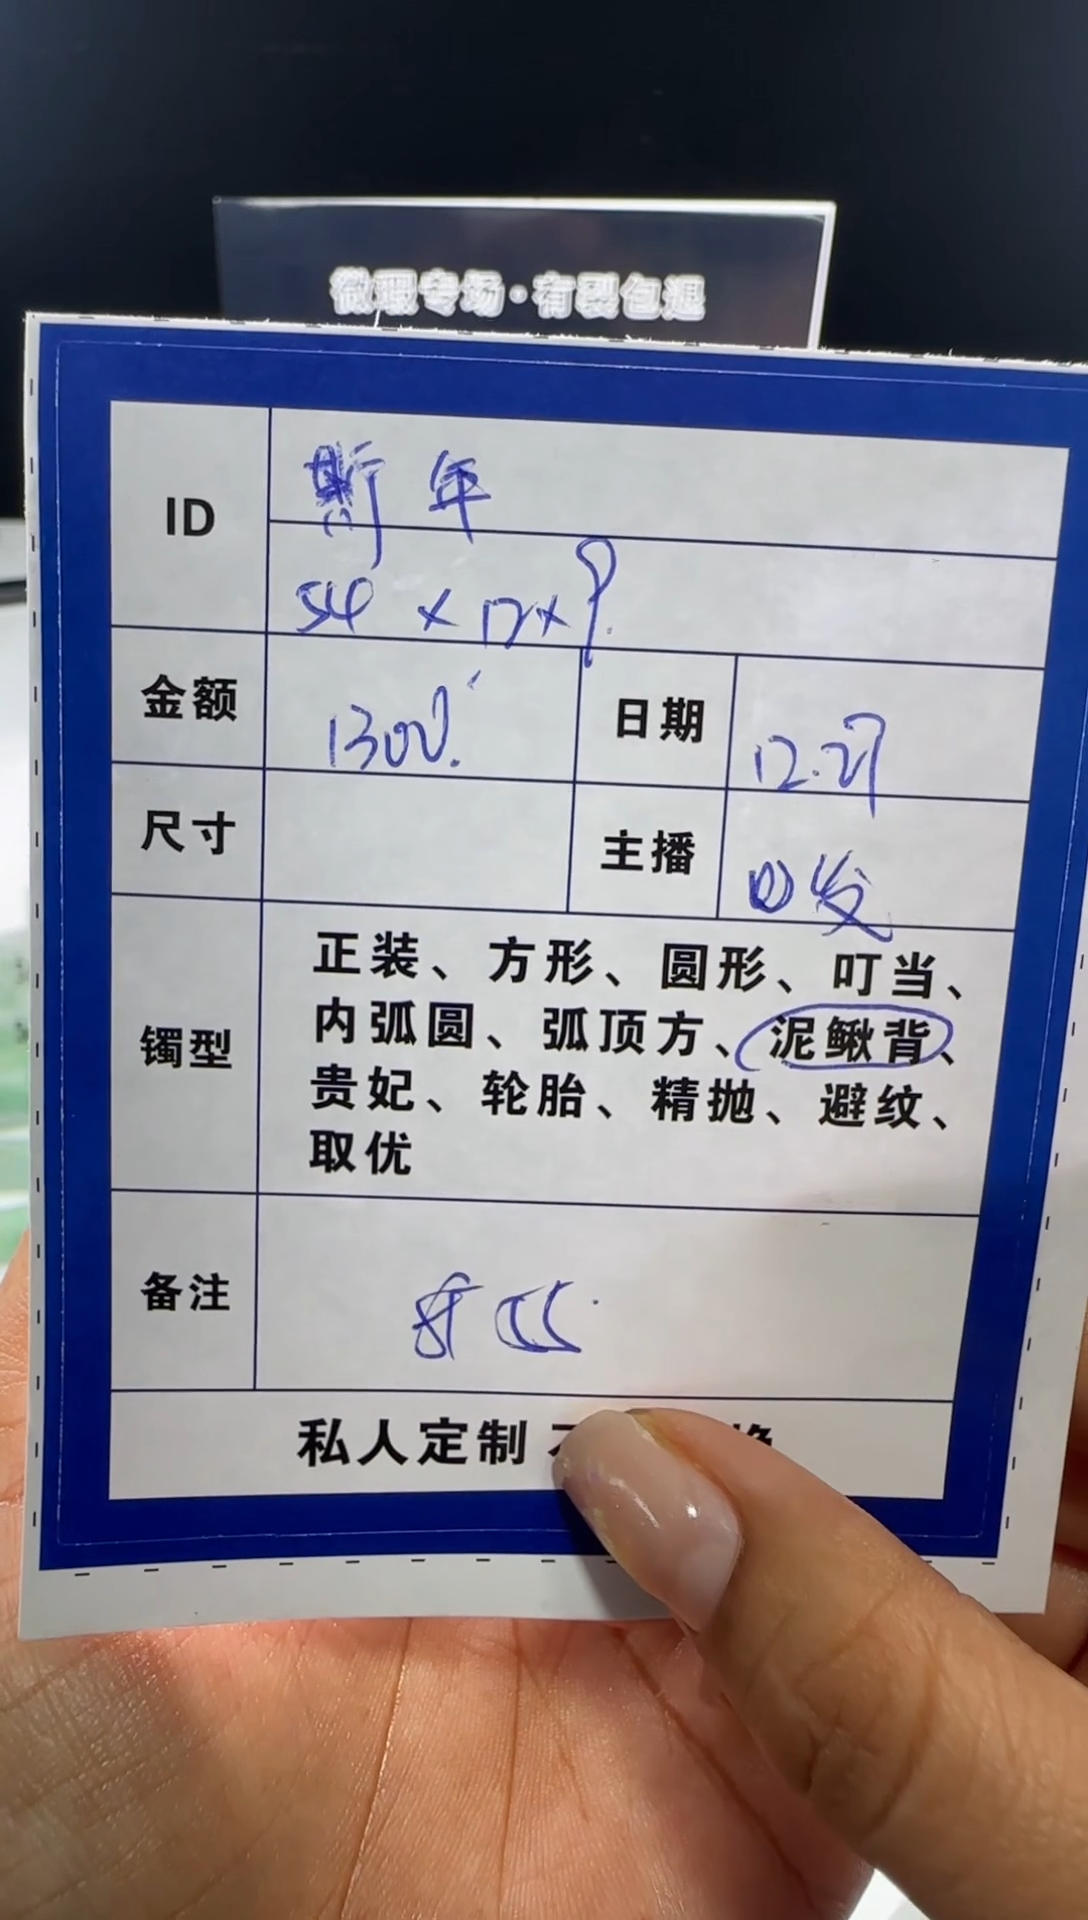 微瑕专场·有裂包退
ID
斯年
54×12×9.
金额
1300.
日期
12.27
尺寸
主播
发
镯型
正装、方形、圆形、叮当、
内弧圆、弧顶方、泥鳅背、
贵妃、轮胎、精抛、避纹、
取优
备注
私人定制